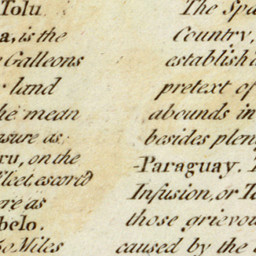 Tolu
a, is the
Galleons
land
he mean
asure as
ru, on the
Fleet escortd
ere as
belo.
Miles
The Spa
Country,
establish'd
pretext of
abounds in
besides plen
Paraguay.
Infusion, or Te
those grievou
caused by the